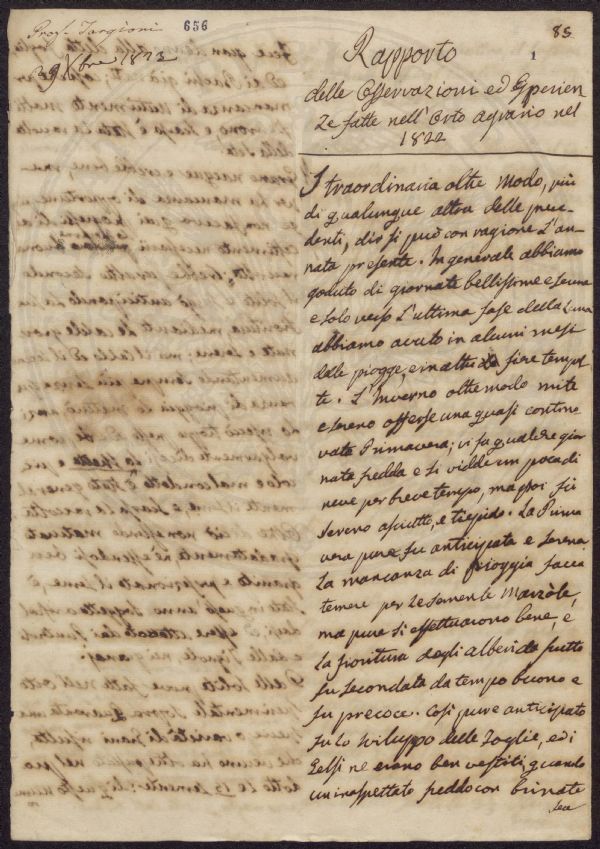 Prof. Targioni
656
85
29 Xbre 1823
1
Rapporto
delle Osservazioni ed Esperien
ze fatte nell'Orto agrario nel
1822
Straordinaria oltre modo, più
di qualunque altra delle prece-
denti, dir si può con ragione L'an-
nata presente. In generale abbiamo
goduto di giornate bellissime e serene
e solo verso L'ultima fase della Luna
abbiamo avuto in alcuni mesi
delle piogge, e in altri fiere tempes
te. L'Inverno oltre modo mite
e sereno offerse una quasi contino
vata Primavera; vi fu qualche gior
nata fredda e si vidde un poca di
neve per breve tempo, ma poi fu
sereno asciutto, e tiepido. La Prima
vera pure fu anticipata e serena
La mancanza di pioggia facea
temere per le semente Marzòle,
ma pure si effettuarono bene, e
La fioritura degli alberi da frutto
fu secondata da tempo buono e
fu precoce. Così pure anticipato
fu lo sviluppo delle foglie, ed i
Gelsi ne erano ben vestiti, quando
un inaspettato freddo con brinate
fece